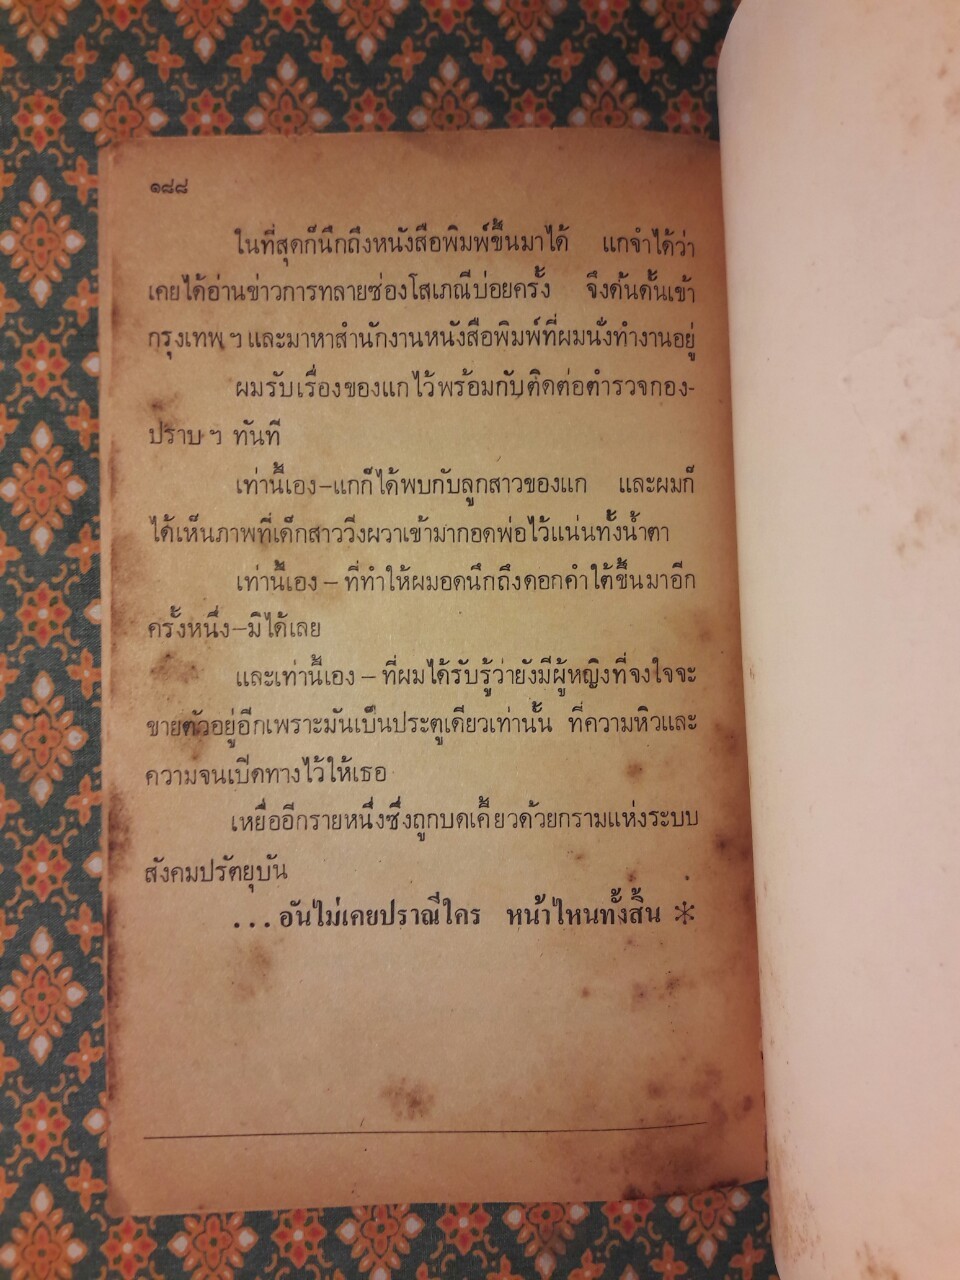 ๑๘๘
ในที่สุดก็นึกถึงหนังสือพิมพ์ขึ้นมาได้ แกจำได้ว่า
เคยได้อ่านข่าวการทลายซ่องโสเภณีบ่อยครั้ง จึงดั้นดั้นเข้า
กรุงเทพ ฯ และมาหาสำนักงานหนังสือพิมพ์ที่ผมนั่งทำงานอยู่
ผมรับเรื่องของแกไว้พร้อมกับติดต่อตำรวจกอง-
ปราบ ฯ ทันที
เท่านี้เอง–แกก็ได้พบกับลูกสาวของแก และผมก็
ได้เห็นภาพที่เด็กสาววิ่งผวาเข้ามากอดพ่อไว้แน่นทั้งน้ำตา
เท่านี้เอง – ที่ทำให้ผมอดนึกถึงดอกคำใต้ขึ้นมาอีก
ครั้งหนึ่ง–มิได้เลย
และเท่านี้เอง – ที่ผมได้รับรู้ว่ายังมีผู้หญิงที่จงใจจะ
ขายตัวอยู่อีกเพราะมันเป็นประตูเดียวเท่านั้น ที่ความหิวและ
ความจนเปิดทางไว้ให้เธอ
เหยื่ออีกรายหนึ่งซึ่งถูกบดเคี้ยวด้วยกรามแห่งระบบ
สังคมปรัตยุบัน
...อันไม่เคยปราณีใคร หน้าไหนทั้งสิ้น *